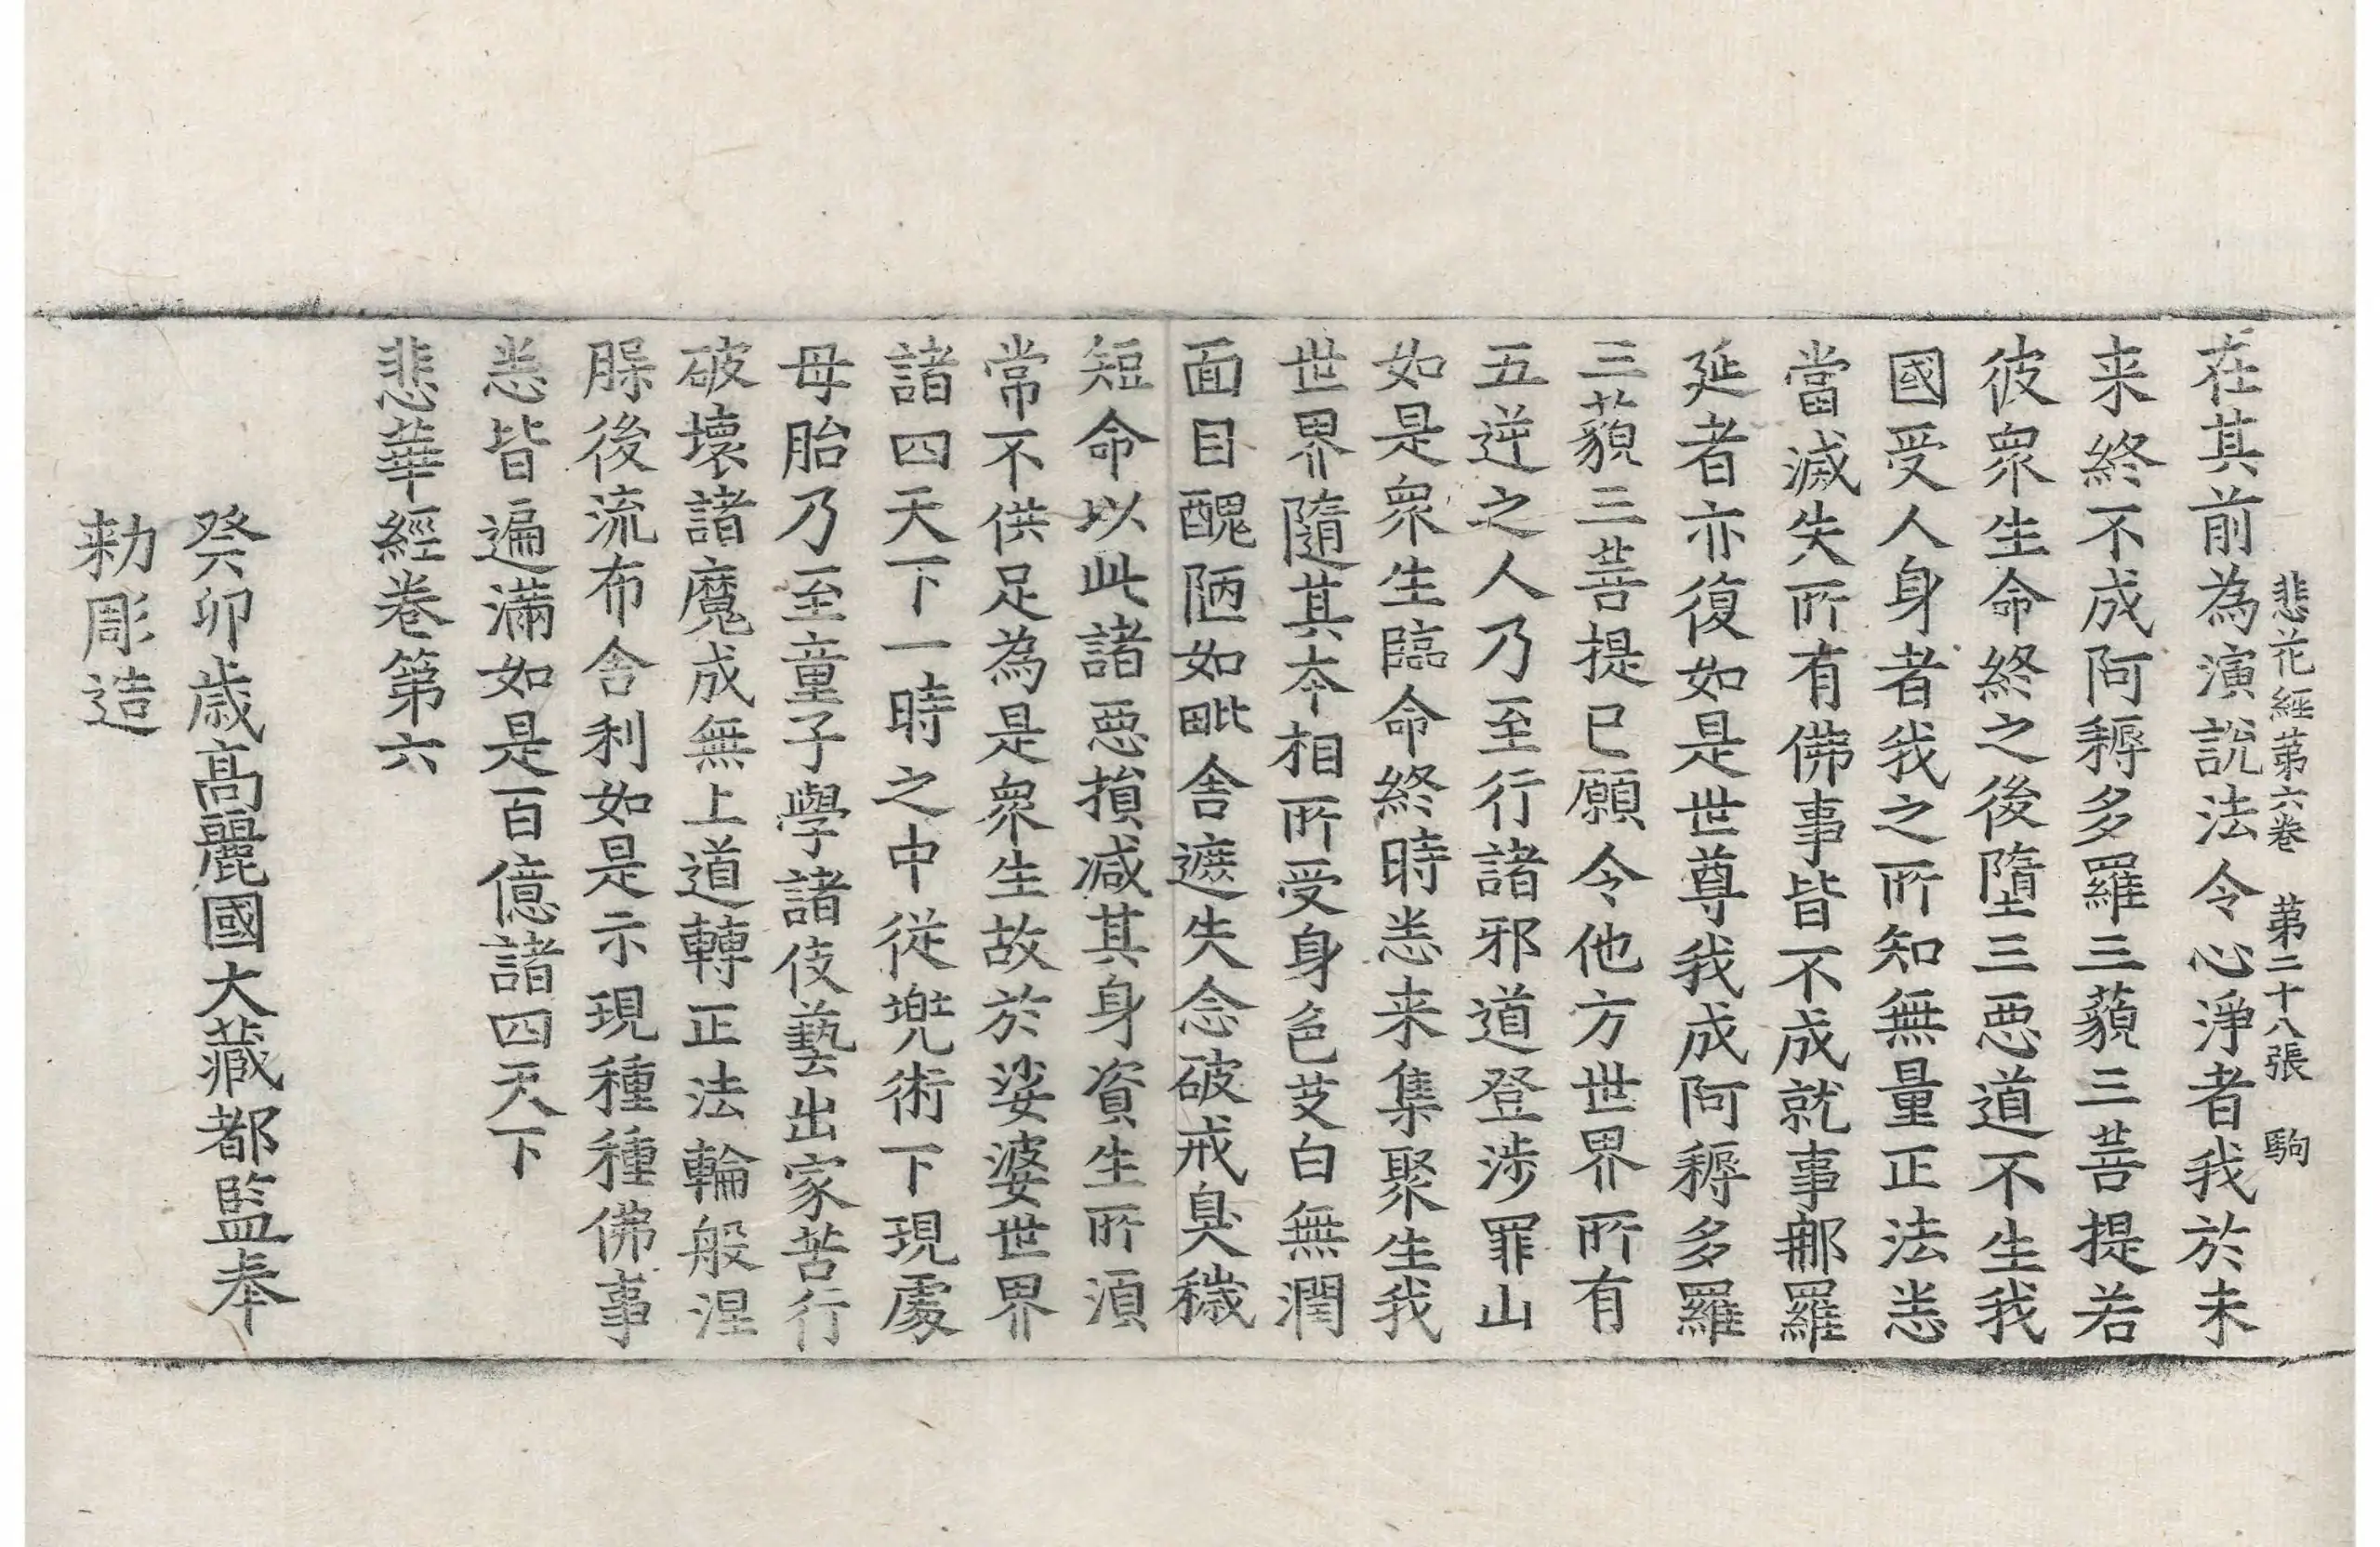 悲花經第六卷 第二十八張 駒
在其前為演說法令心淨者我於未
来終不成阿耨多羅三藐三菩提若
彼眾生命終之後墮三惡道不生我
國受人身者我之所知無量正法悉
當滅失所有佛事皆不成就事那羅
延者亦復如是世尊我成阿耨多羅
三藐三菩提已願令他方世界所有
五逆之人乃至行諸邪道登涉罪山
如是眾生臨命終時悉来集聚生我
世界隨其本相所受身色艾白無潤
面目醜陋如毗舍遮失念破戒臭穢
短命以此諸惡損減其身資生所須
常不供足為是眾生故於娑婆世界
諸四天下一時之中從兜術下現處
母胎乃至童子學諸伎藝出家苦行
破壞諸魔成無上道轉正法輪般涅
槃後流布舍利如是示現種種佛事
悉皆遍滿如是百億諸四天下
悲華經卷第六
癸卯歲高麗國大藏都監奉
勅彫造